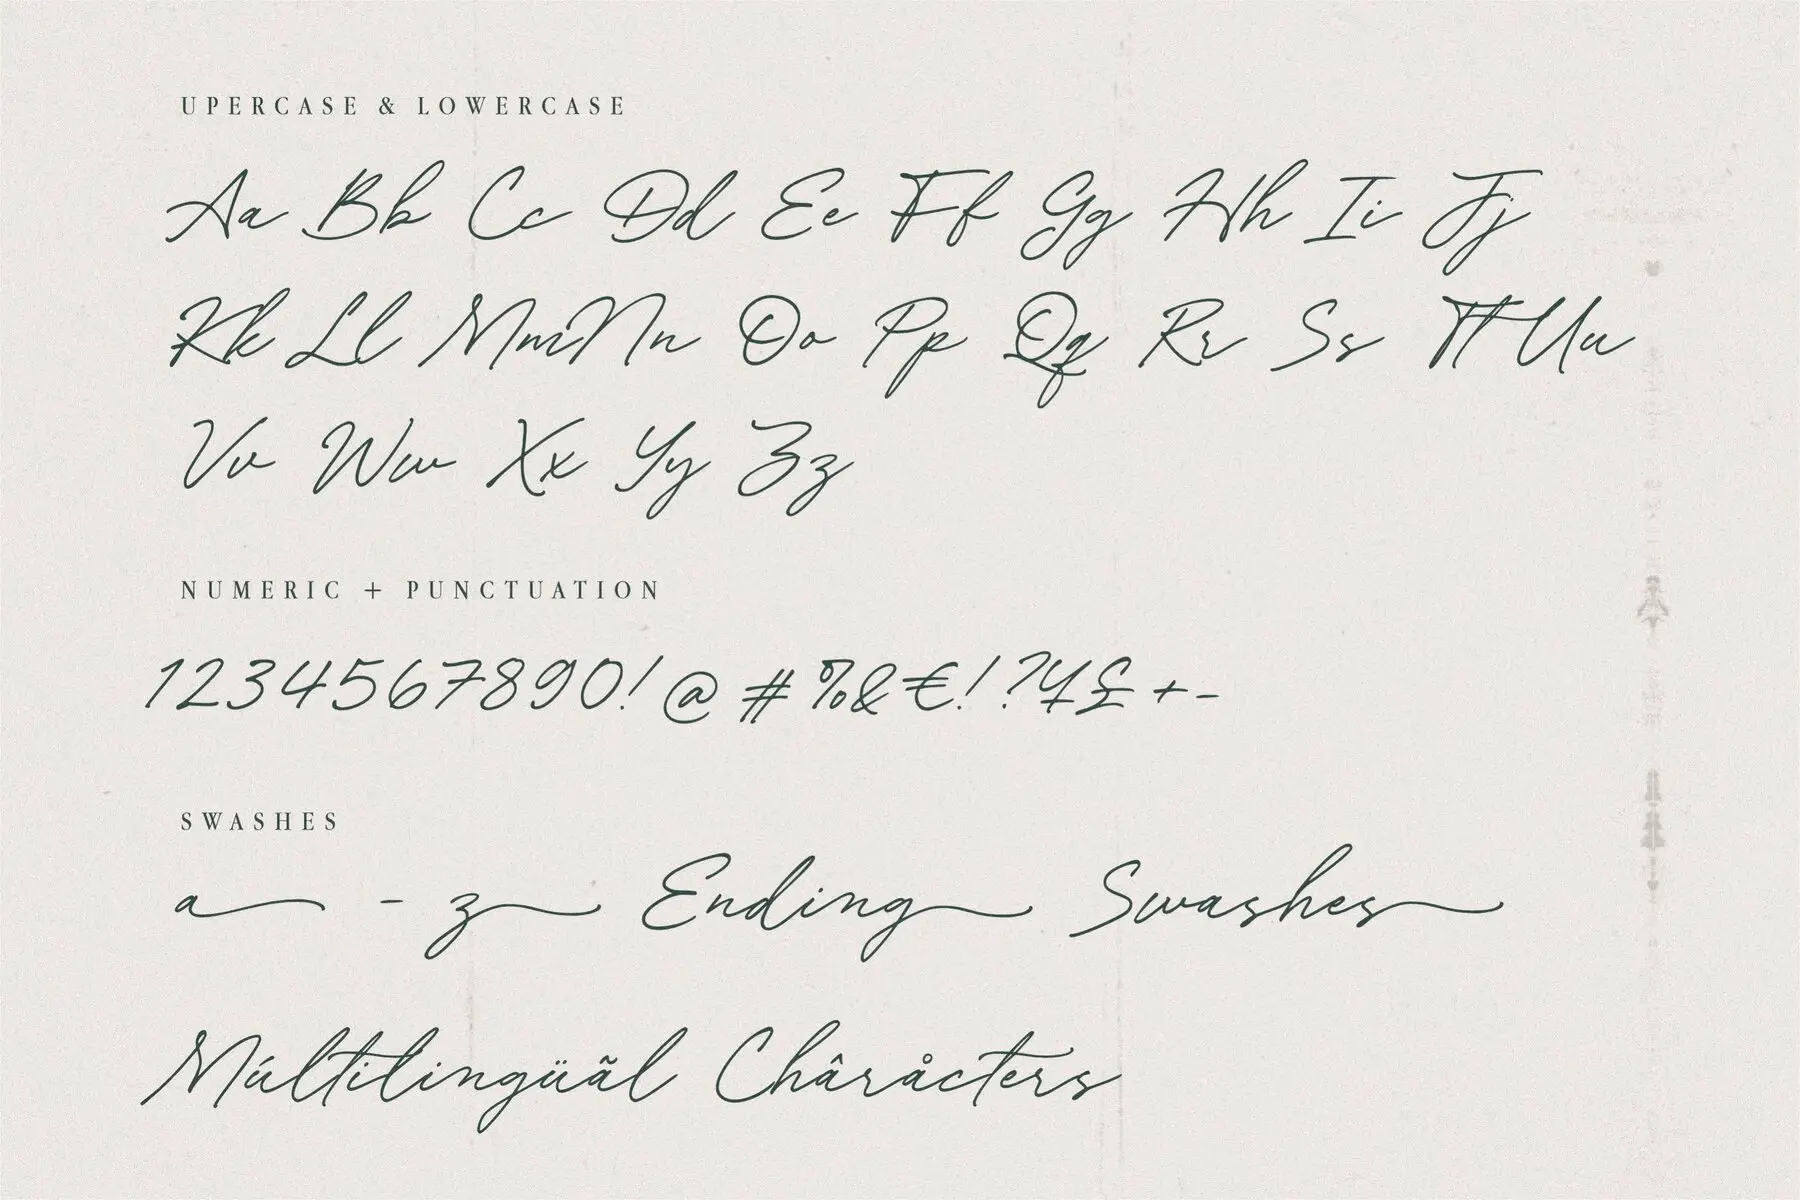 UPERCASE & LOWERCASE
Aa Bb Cc Dd Ee Ff Gg Hh Ii Jj
Kk Ll Mm Nn Oo Pp Qq Rr Ss Tt Uu
Vv Ww Xx Yy Zz
NUMERIC + PUNCTUATION
1234567890! @ # %& €! ?¥£ +-
SWASHES
a - z Ending Swashes
Múltilingüãl Châråcters